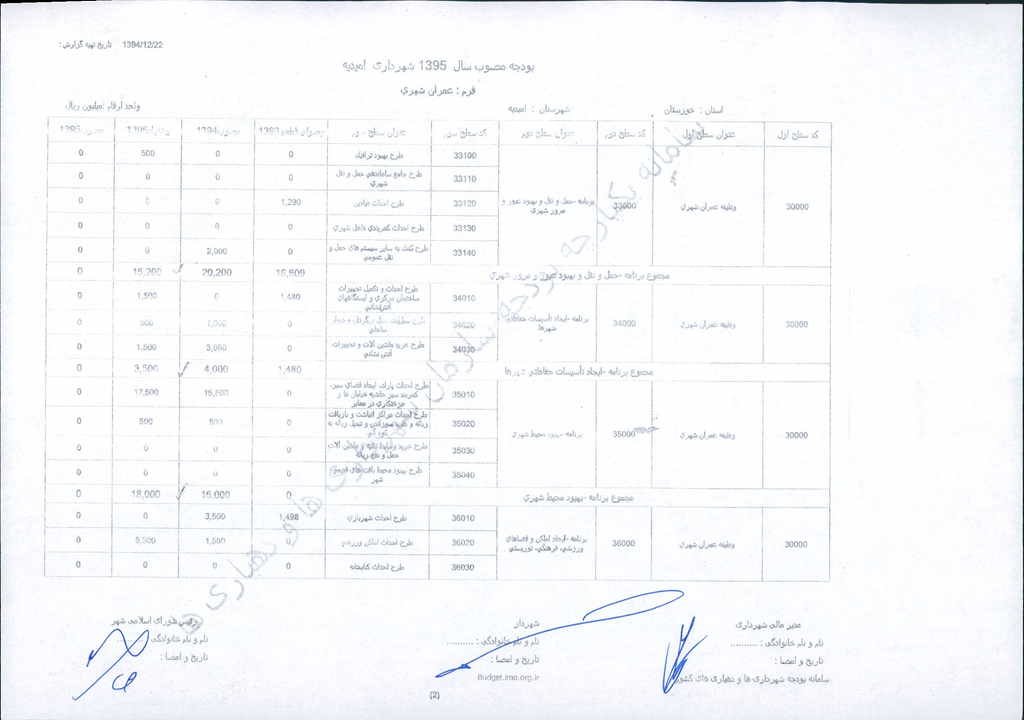 تاریخ تهیه گزارش : 1394/12/22
بودجه مصوب سال 1395 شهرداری امیدیه
فرم : عمران شهری
استان : خوزستان شهرستان : امیدیه واحد ارقام :میلیون ریال
کد سطح اول عنوان سطح اول کد سطح دوم عنوان سطح دوم کد سطح سوم عنوان سطح سوم
30000 وظیفه عمران شهری 33000 برنامه -حمل و نقل و بهبود عبور و مرور شهری
33100 طرح بهبود ترافیک 0 0 500 0
33110 طرح جامع ساماندهی حمل و نقل شهری 0 0 0 0
33120 طرح احداث میادین 1,290 0 0 0
33130 طرح احداث کمربندی داخل شهری 0 0 0 0
33140 طرح کمک به سایر سیستم های حمل و نقل عمومی 0 2,000 0 0
مجموع برنامه -حمل و نقل و بهبود عبور و مرور شهری 20,200 0
30000 وظیفه عمران شهری 34000 برنامه -ایجاد تأسیسات حفاظتی شهرها
34010 طرح احداث و تکمیل تجهیزات ساختمان مرکزی و ایستگاههای آتش‌نشانی 1,480 0 1,500 0
34020 0
34030 طرح خرید ماشین آلات و تجهیزات آتش نشانی 0 3,000 1,500 0
مجموع برنامه -ایجاد تأسیسات حفاظتی شهرها 1,480 4,000 3,500 0
30000 وظیفه عمران شهری 35000 برنامه -بهبود محیط شهری
35010 طرح احداث پارک، ایجاد فضای سبز، کمربند سبز حاشیه خیابان ها و درختکاری در معابر 0 17,500 0
35020 0 500 500 0
35030 0 0 0 0
35040 طرح بهبود محیط بافت‌های قدیمی شهر 0 0 0 0
مجموع برنامه -بهبود محیط شهری 0 16,000 18,000 0
30000 وظیفه عمران شهری 36000 برنامه -ایجاد اماکن و فضاهای ورزشی، فرهنگی، توریستی
36010 طرح احداث شهربازی 1,498 3,500 0 0
36020 طرح احداث اماکن ورزشی 0 1,500 0
36030 طرح احداث کتابخانه 0 0 0 0
مدیر مالی شهرداری شهردار رئیس شورای اسلامی شهر
نام و نام خانوادگی : .......... نام و نام خانوادگی : .......... نام و نام خانوادگی
تاریخ و امضا : تاریخ و امضا : تاریخ و امضا :
سامانه بودجه شهرداری ها و دهیاری های کشور Budget.imo.org.ir
(2)